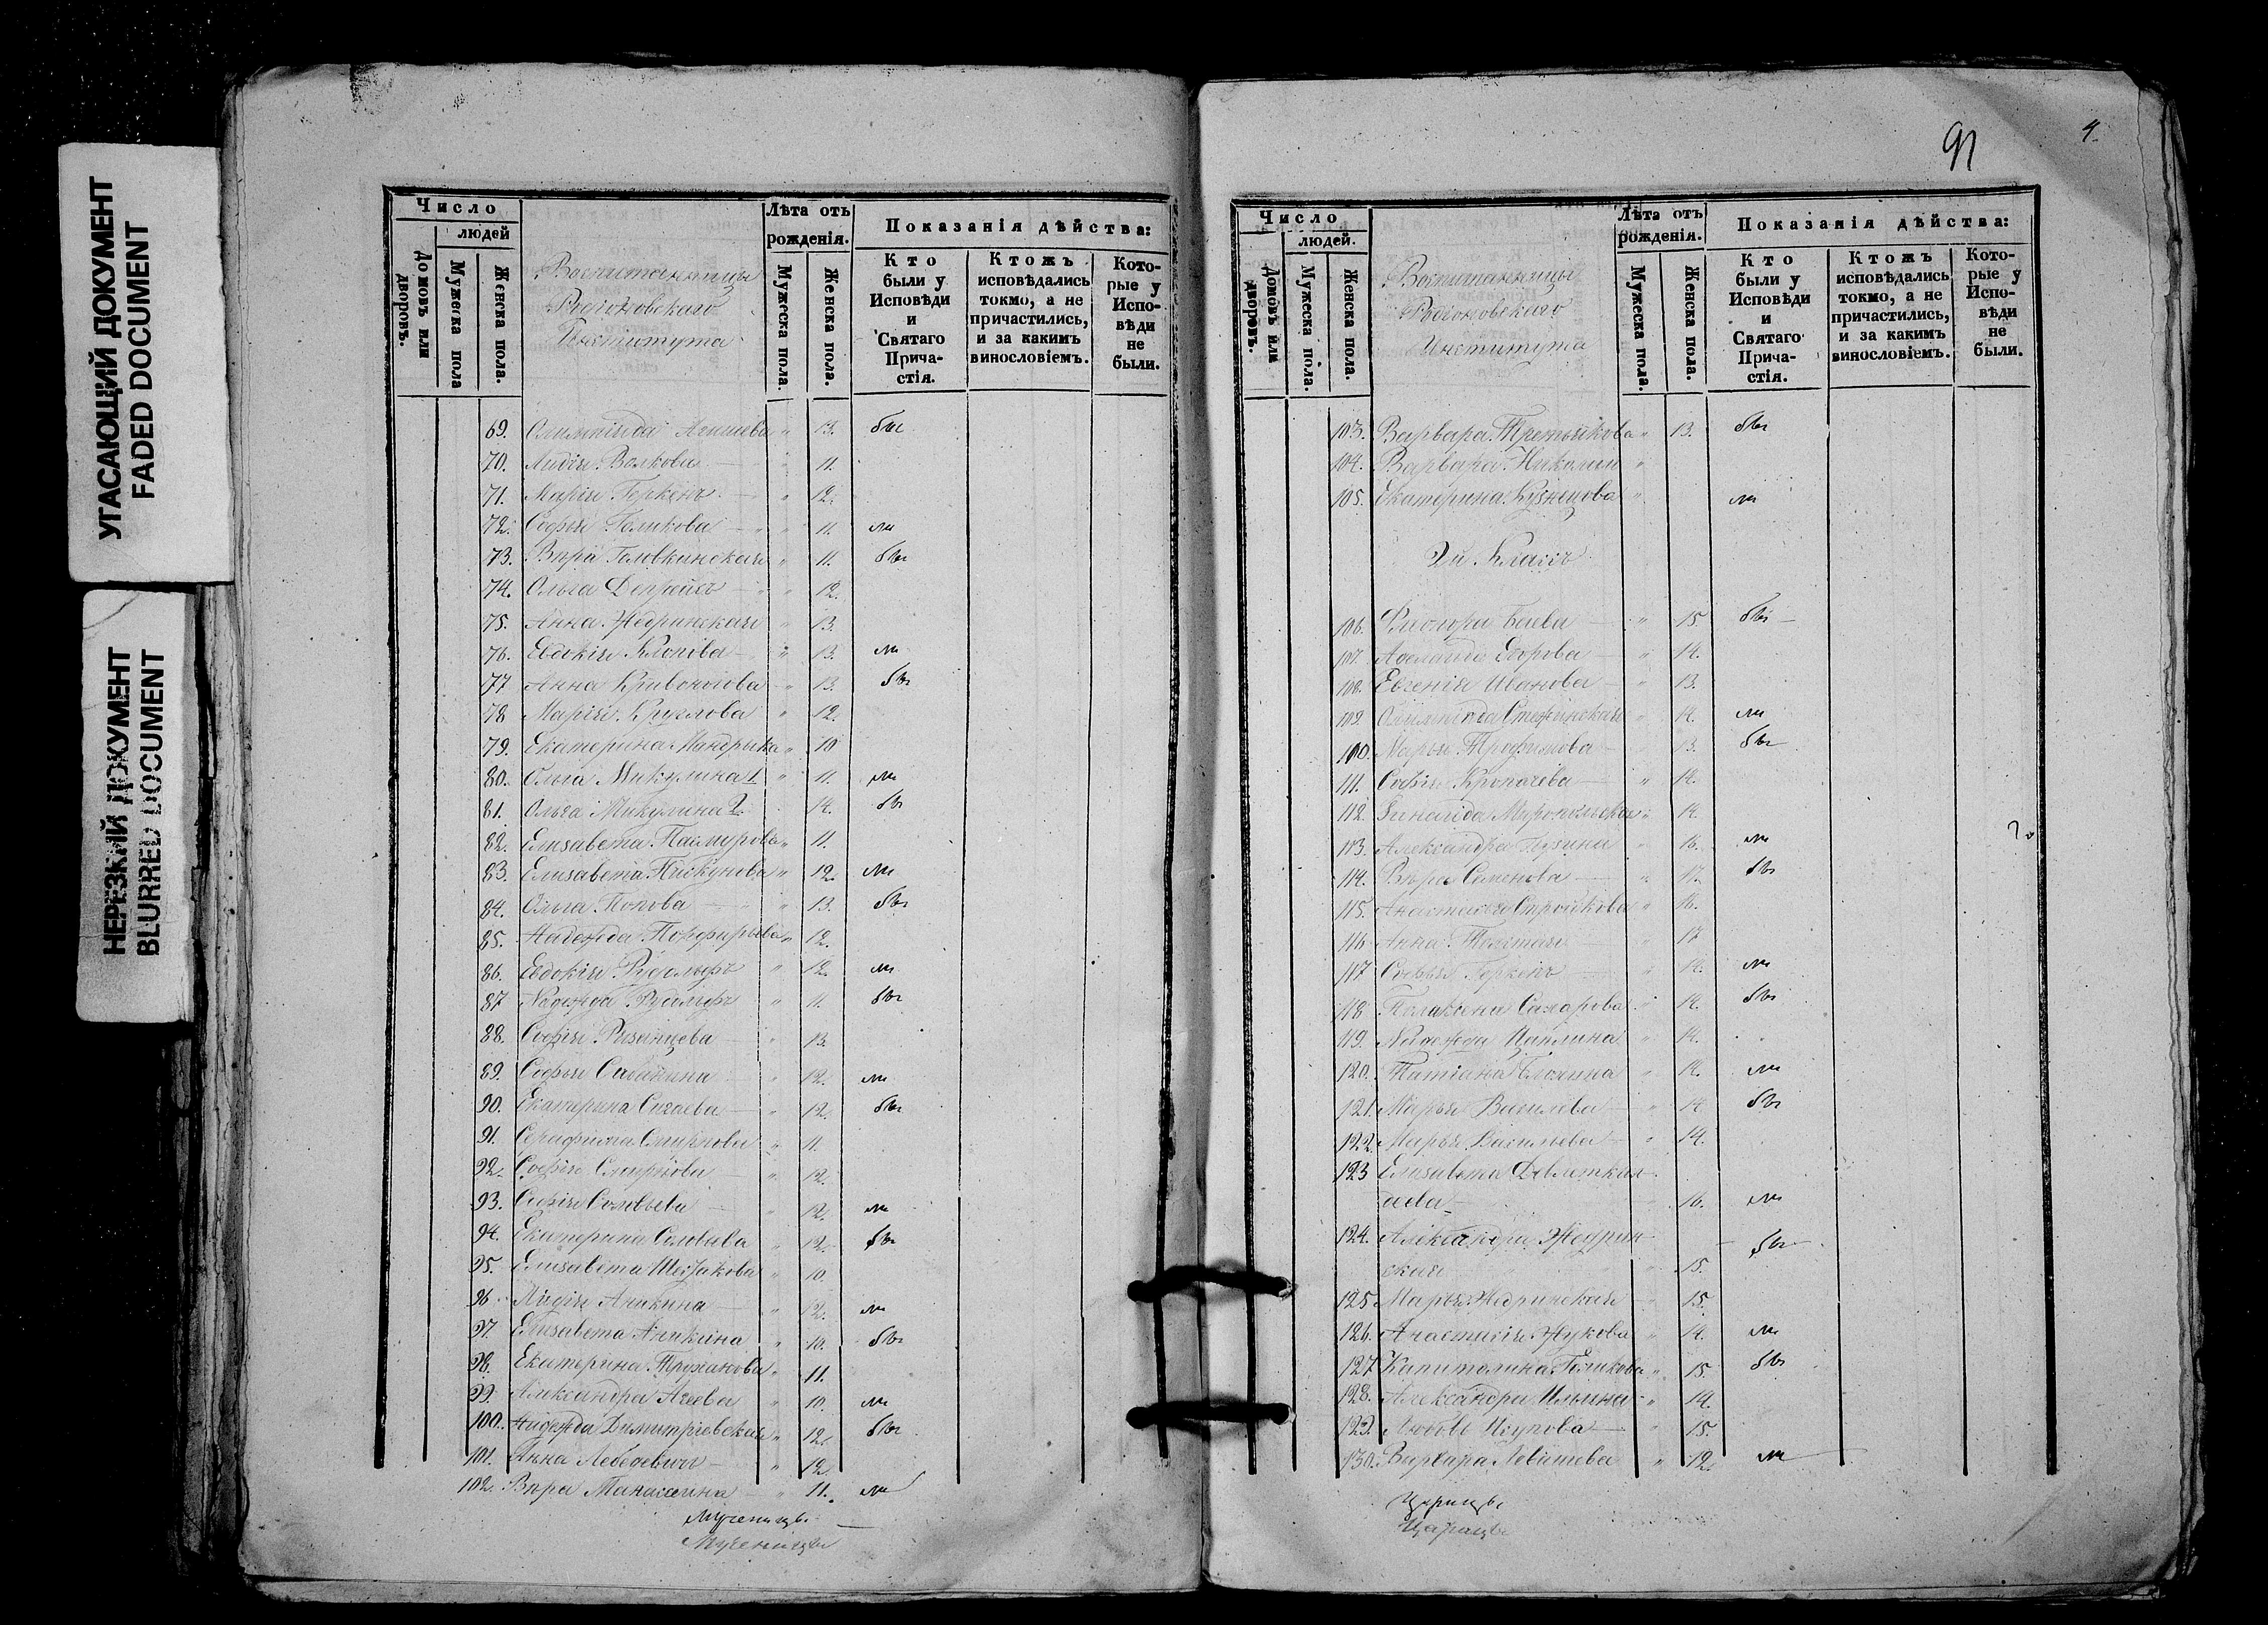 УГАСАЮЩИЙ ДОКУМЕНТ
FADED DOCUMENT
НЕРЕЗКИЙ ДОКУМЕНТ
BLURRED DOCUMENT
Число
людей
Домовъ или дворовъ.
Мужеска пола
Женска пола.
Воспитанницы
Родіоновскаго
Института
Лѣта отъ рожденія.
Мужеска пола.
Женска пола.
Показанія дѣйства:
Кто были у Исповѣди и Святаго Причастія.
Ктожъ исповѣдались токмо, а не причастились, и за какимъ винословіемъ.
Которые у Исповѣди не были.
69. Олимпіада " 13. бы
70. Лидія Волкова " 11.
71. Марія Геркенъ " 12.
72. Софья Голикова " 11. ли
73. Вѣра Головкинская " 11. бы
74. Ольга " 12.
75. Анна Жедринская " 13.
76. Евдокія " 13. ли
77 Анна Кривоногова " 13. бы
78 Марія Круглова " 12.
79. Екатерина Мандрыка " 10
80. Ольга Микулина 1. " 11. ли
81. Ольга Микулина 2. 14. бы
82. Елисавета " 11.
83. Елисавета " 12. ли
84. Ольга Попова " 13. бы
85. Надежда Порфирьева " 12.
86. Евдокія Рудольфъ " 12. ли
87 Надежда Рудольфъ " 11. бы
88. Софія Рязанцева " 13.
89. Софья " 12. ли
90. Екатерина " 12. бы
91. Серафима Смирнова " 11.
92. Софія Смирнова " 12.
93. Софія Соловьева " 12. ли
94. Екатерина Соловьева " 12. бы
95. Елисавета " 10.
96. Лидія Аникина " 12. ли
97. Елисавета Аникина " 10. бы
98. Екатерина " 11.
99. Александра Агеева " 10. ли
100. Надежда Димитріевская " 12. бы
101. Анна Лебедевичъ " 12.
102. Вѣра Манасеина " 11. ли
Мученицъ
Мученицы
91
4.
Число
людей.
Домовъ или дворовъ.
Мужеска пола.
Женска пола.
Воспитанницы
Родіоновскаго
Института
Лѣта отъ рожденія.
Мужеска пола.
Женска пола.
Показанія дѣйства:
Кто были у Исповѣди и Святаго Причастія.
Ктожъ исповѣдались токмо, а не причастились, и за какимъ винословіемъ.
Которые у Исповѣди не были.
103. Варвара Третьякова " 13. бы
104. Варвара "
105. Екатерина Кузнецова " ли
2й Классъ
106. Баева " 15 бы
107. Аделаида Егорова " 14.
108. Евгенія Иванова " 13.
109. Олимпіада " 14. ли
100. Марья Трофимова 13. бы
111. Софія Кропачева " 14.
112. Зинаида " 14.
113. Александра " 16. ли
114. Вѣра Семенова " 17. бы
115. Анастасія " 16.
116 Анна Толстая " 17
117 Софья Геркенъ " 14. ли
118 Сахарова " 14. бы
119. Надежда Цаплина " 14.
120. Татіана " 14. ли
121. Марья " 14 бы
122. Марья Васильева " 14.
123 Елисавета Девлеткил-
деева " 16. ли
124. Александра Жедрин-
ская " 15. бы
125 Марья Жедринская 15.
126. Анастасія Жукова " 14. ли
127 Капитолина Голикова " 15. бы
128. Александра Ильина " 14.
129. Любовь " 15.
130. Варвара " 12. ли
Царицъ
Царицы